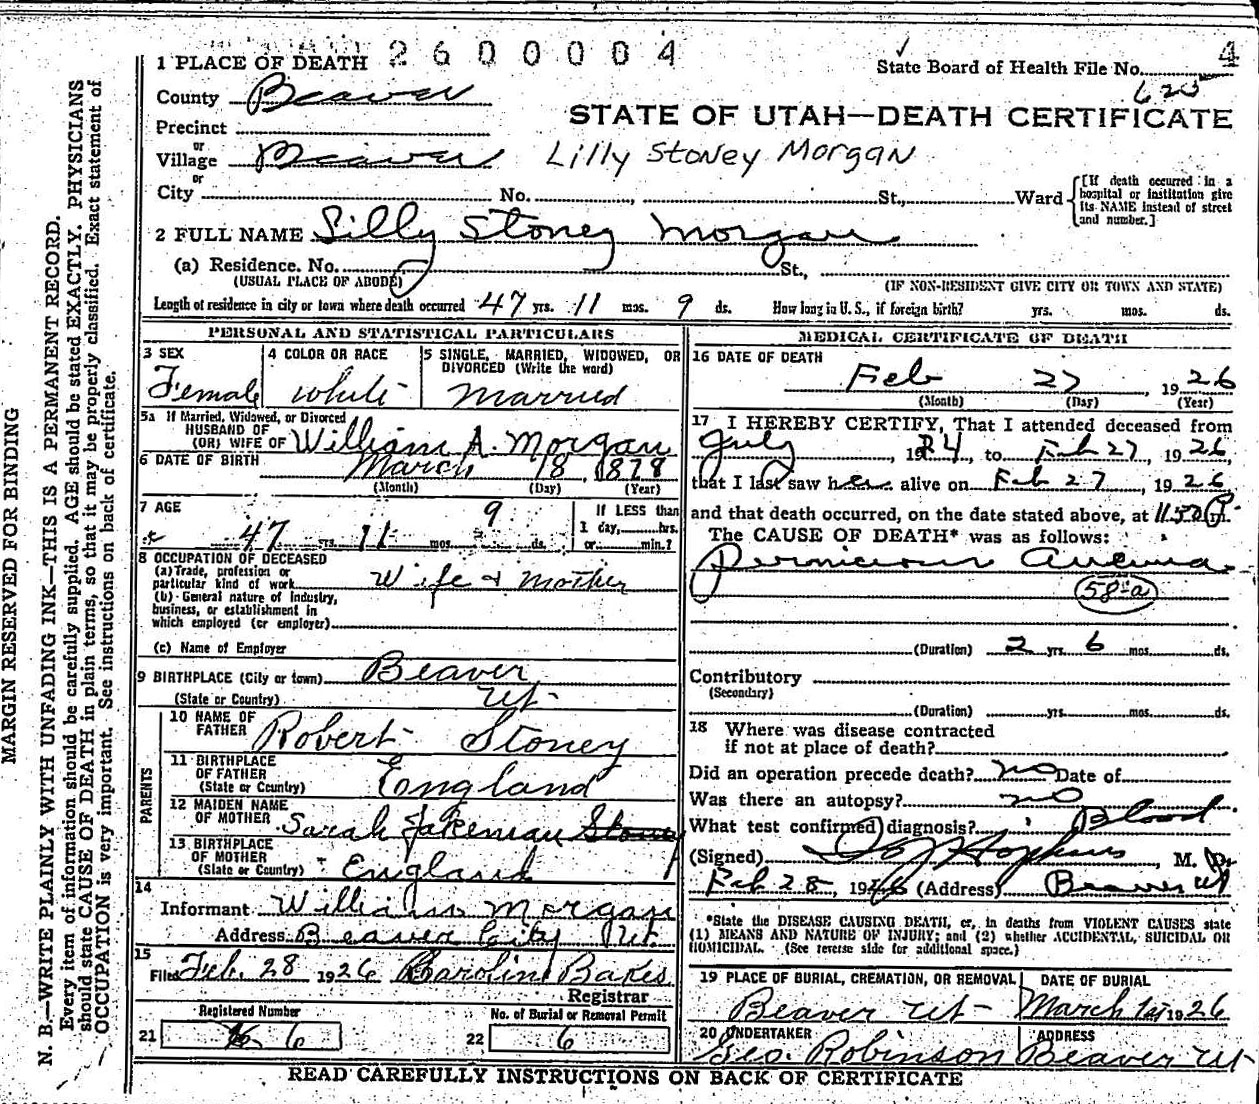 2600004
4
1 PLACE OF DEATH
State Board of Health File No.
County Beaver
STATE OF UTAH—DEATH CERTIFICATE
Precinct
or
Village Beaver
Lilly Stoney Morgan
or
City No. , St., Ward
[If death occurred in a hospital or institution give its NAME instead of street and number.]
2 FULL NAME Lilly Stoney Morgan
(a) Residence. No. St.,
(USUAL PLACE OF ABODE) (IF NON-RESIDENT GIVE CITY OR TOWN AND STATE)
Length of residence in city or town where death occurred 47 yrs. 11 mos. 9 ds. How long in U. S., if foreign birth? yrs. mos. ds.
PERSONAL AND STATISTICAL PARTICULARS
3 SEX
Female
4 COLOR OR RACE
white
5 SINGLE, MARRIED, WIDOWED, OR DIVORCED (Write the word)
Married
5a If Married, Widowed, or Divorced
HUSBAND OF
(OR) WIFE OF William A. Morgan
6 DATE OF BIRTH March 18 1878
(Month) (Day) (Year)
7 AGE
47 yrs. 11 mos. 9 ds.
If LESS than
1 day, hrs.
or min.?
8 OCCUPATION OF DECEASED
(a) Trade, profession or
particular kind of work Wife & Mother
(b) General nature of industry,
business, or establishment in
which employed (or employer)
(c) Name of Employer
9 BIRTHPLACE (City or town) Beaver
(State or Country) Ut-
PARENTS
10 NAME OF FATHER Robert Stoney
11 BIRTHPLACE OF FATHER (State or Country) England
12 MAIDEN NAME OF MOTHER Sarah Jakeman Stoney
13 BIRTHPLACE OF MOTHER (State or Country) England
14
Informant William Morgan
Address Beaver City Ut.
15
Filed Feb. 28 1926 Caroline Bakes
Registrar
Registered Number
21 6
No. of Burial or Removal Permit
22 6
MEDICAL CERTIFICATE OF DEATH
16 DATE OF DEATH
Feb 27 1926
(Month) (Day) (Year)
17 I HEREBY CERTIFY, That I attended deceased from
July , 1924, to Feb 27, 1926,
that I last saw her alive on Feb 27, 1926
and that death occurred, on the date stated above, at 1150 P.m.
The CAUSE OF DEATH* was as follows:
Pernicious Anemia
58-a
(Duration) 2 yrs. 6 mos. ds.
Contributory
(Secondary)
(Duration) yrs. mos. ds.
18 Where was disease contracted
if not at place of death?
Did an operation precede death? no Date of
Was there an autopsy? no
What test confirmed diagnosis? Blood
(Signed) Hopkins, M. D.
Feb 28, 1926 (Address) Beaver Ut
*State the DISEASE CAUSING DEATH, or, in deaths from VIOLENT CAUSES state
(1) MEANS AND NATURE OF INJURY; and (2) whether ACCIDENTAL, SUICIDAL OR
HOMICIDAL. (See reverse side for additional space.)
19 PLACE OF BURIAL, CREMATION, OR REMOVAL
Beaver Ut-
DATE OF BURIAL
March 1st 1926
20 UNDERTAKER
Geo. Robinson
ADDRESS
Beaver Ut
READ CAREFULLY INSTRUCTIONS ON BACK OF CERTIFICATE
MARGIN RESERVED FOR BINDING
N. B.—WRITE PLAINLY WITH UNFADING INK—THIS IS A PERMANENT RECORD.
Every item of information should be carefully supplied. AGE should be stated EXACTLY. PHYSICIANS
should state CAUSE OF DEATH in plain terms, so that it may be properly classified. Exact statement of
OCCUPATION is very important. See instructions on back of certificate.